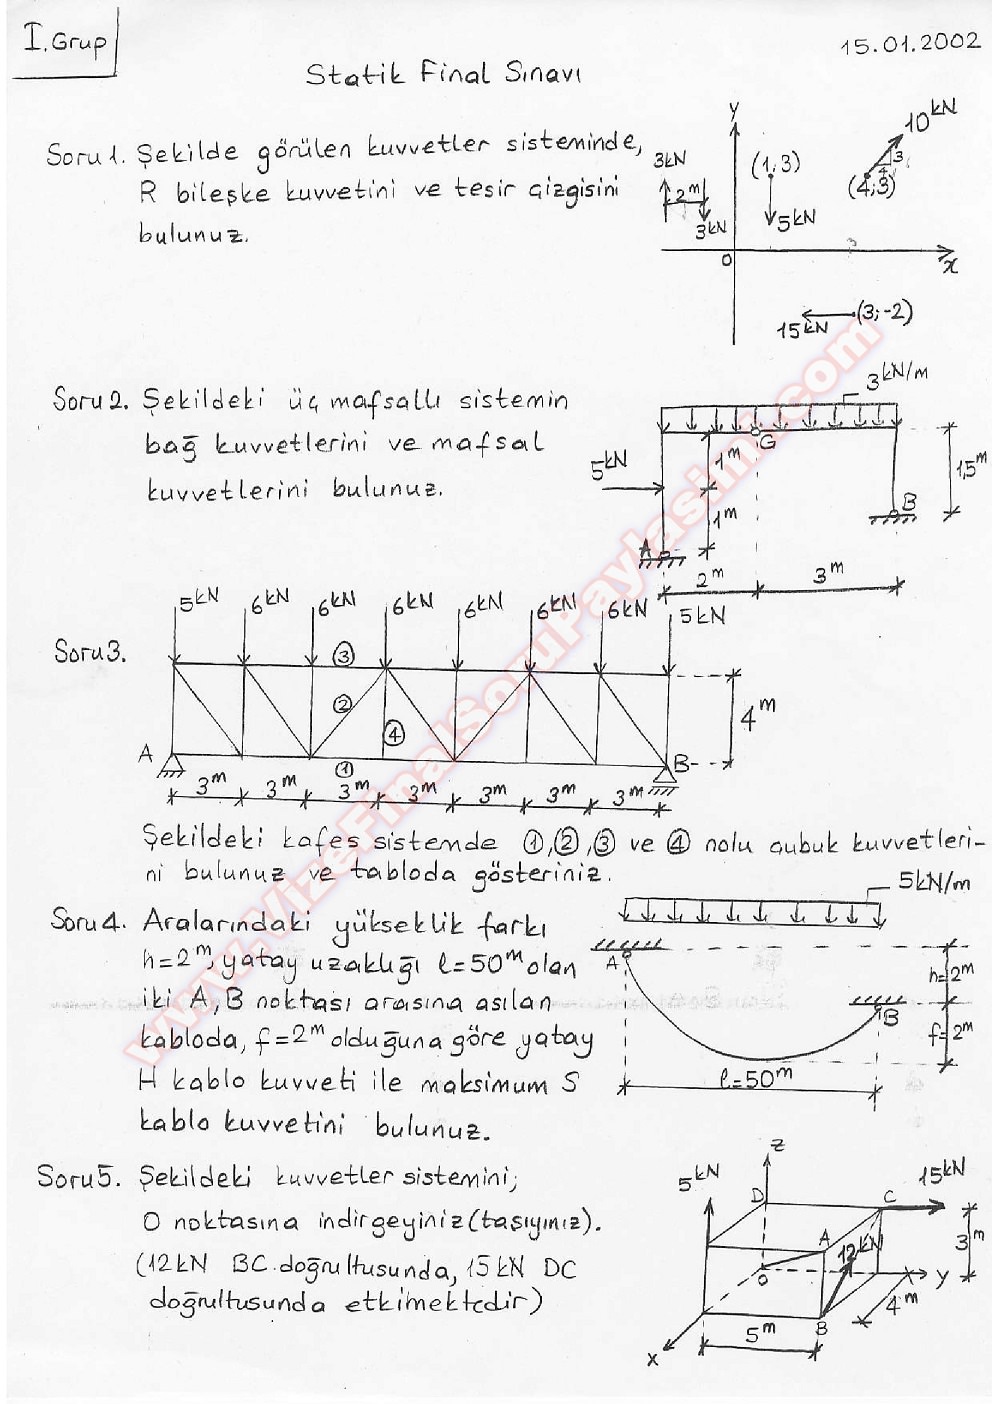 I. Grup
15.01.2002
Statik Final Sınavı
Soru 1. Şekilde görülen kuvvetler sisteminde,
R bileşke kuvvetini ve tesir çizgisini
bulunuz.
y
10 kN
3
4
(4;3)
(1;3)
5 kN
3 kN
2 m
3 kN
O
3
x
15 kN
(3;-2)
Soru 2. Şekildeki üç mafsallı sistemin
bağ kuvvetlerini ve mafsal
kuvvetlerini bulunuz.
3 kN/m
G
5 kN
1 m
1 m
1,5 m
A
B
2 m
3 m
Soru 3.
5 kN
6 kN
6 kN
6 kN
6 kN
6 kN
6 kN
5 kN
③
②
④
①
4 m
A
B
3 m
3 m
3 m
3 m
3 m
3 m
3 m
Şekildeki kafes sistemde ①,②,③ ve ④ nolu çubuk kuvvetleri-
ni bulunuz ve tabloda gösteriniz.
Soru 4. Aralarındaki yükseklik farkı
h=2 m, yatay uzaklığı l=50 m olan
iki A, B noktası arasına asılan
kabloda, f=2 m olduğuna göre yatay
H kablo kuvveti ile maksimum S
kablo kuvvetini bulunuz.
5 kN/m
A
B
h=2 m
f=2 m
l=50 m
Soru 5. Şekildeki kuvvetler sistemini;
O noktasına indirgeyiniz (taşıyınız).
(12 kN BC doğrultusunda, 15 kN DC
doğrultusunda etkimektedir)
z
5 kN
15 kN
D
C
A
12 kN
3 m
O
y
4 m
B
5 m
x
www.VizeFinalSoruPaylasimi.com